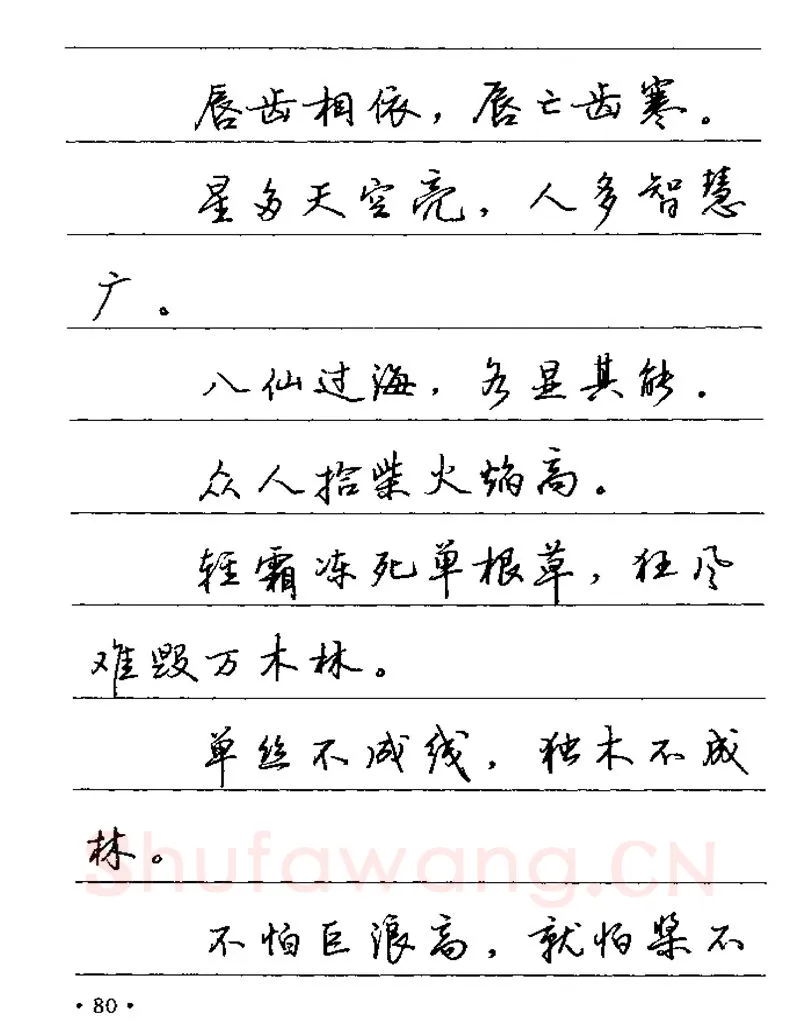 唇齿相依，唇亡齿寒。
星多天空亮，人多智慧
广。
八仙过海，各显其能．
众人拾柴火焰高。
轻霜冻死单根草，狂风
难毁万木林。
单丝不成线，独木不成
林。
Shufawang.CN
不怕巨浪高，就怕桨不
·80·